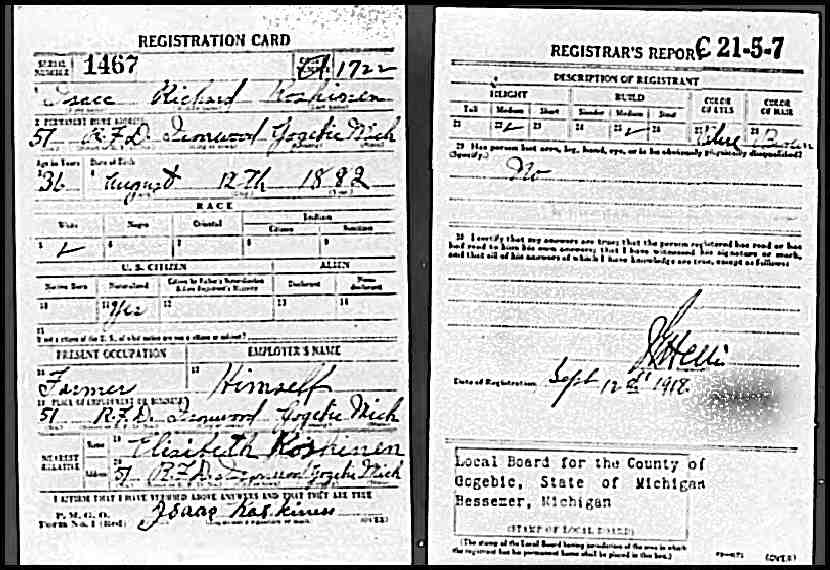 REGISTRATION CARD
SERIAL NUMBER 1467 1722
Isaac Richard Koskinen
2 PERMANENT HOME ADDRESS:
51 R.F.D. Ironwood Gogebic Mich
Age in Years Date of Birth
36 August 12th 1882
RACE
White Negro Oriental Indian
Citizen Noncitizen
5 ✓ 6 7 8 9
U. S. CITIZEN ALIEN
Native Born Naturalized Citizen by Father's Naturalization Before Registrant's Majority Declarant Non-declarant
10 11 Yes 12 13 14
15
If not a citizen of the U. S., of what nation are you a citizen or subject?
PRESENT OCCUPATION EMPLOYER'S NAME
16 Farmer 17 Himself
18 PLACE OF EMPLOYMENT OR BUSINESS:
51 R.F.D. Ironwood Gogebic Mich
NEAREST RELATIVE Name 19 Elisibeth Koskinen
Address 20 51 R.F.D. Ironwood Gogebic Mich
I AFFIRM THAT I HAVE VERIFIED ABOVE ANSWERS AND THAT THEY ARE TRUE
P. M. G. O.
Form No. 1 (Red) Isaac Koskinen (OVER)
REGISTRAR'S REPORT C 21-5-7
DESCRIPTION OF REGISTRANT
HEIGHT BUILD COLOR OF EYES COLOR OF HAIR
Tall Medium Short Slender Medium Stout
21 22 ✓ 23 24 25 ✓ 26 27 Blue 28
29 Has person lost arm, leg, hand, eye, or is he obviously physically disqualified?
(Specify.) No
30 I certify that my answers are true; that the person registered has read or has
had read to him his own answers; that I have witnessed his signature or mark,
and that all of his answers of which I have knowledge are true, except as follows:
Date of Registration Sept 12th 1918
Local Board for the County of
Gogebic, State of Michigan
Bessemer, Michigan
(STAMP OF LOCAL BOARD)
(The stamp of the Local Board having jurisdiction of the area in which
the registrant has his permanent home shall be placed in this box.)
(OVER)